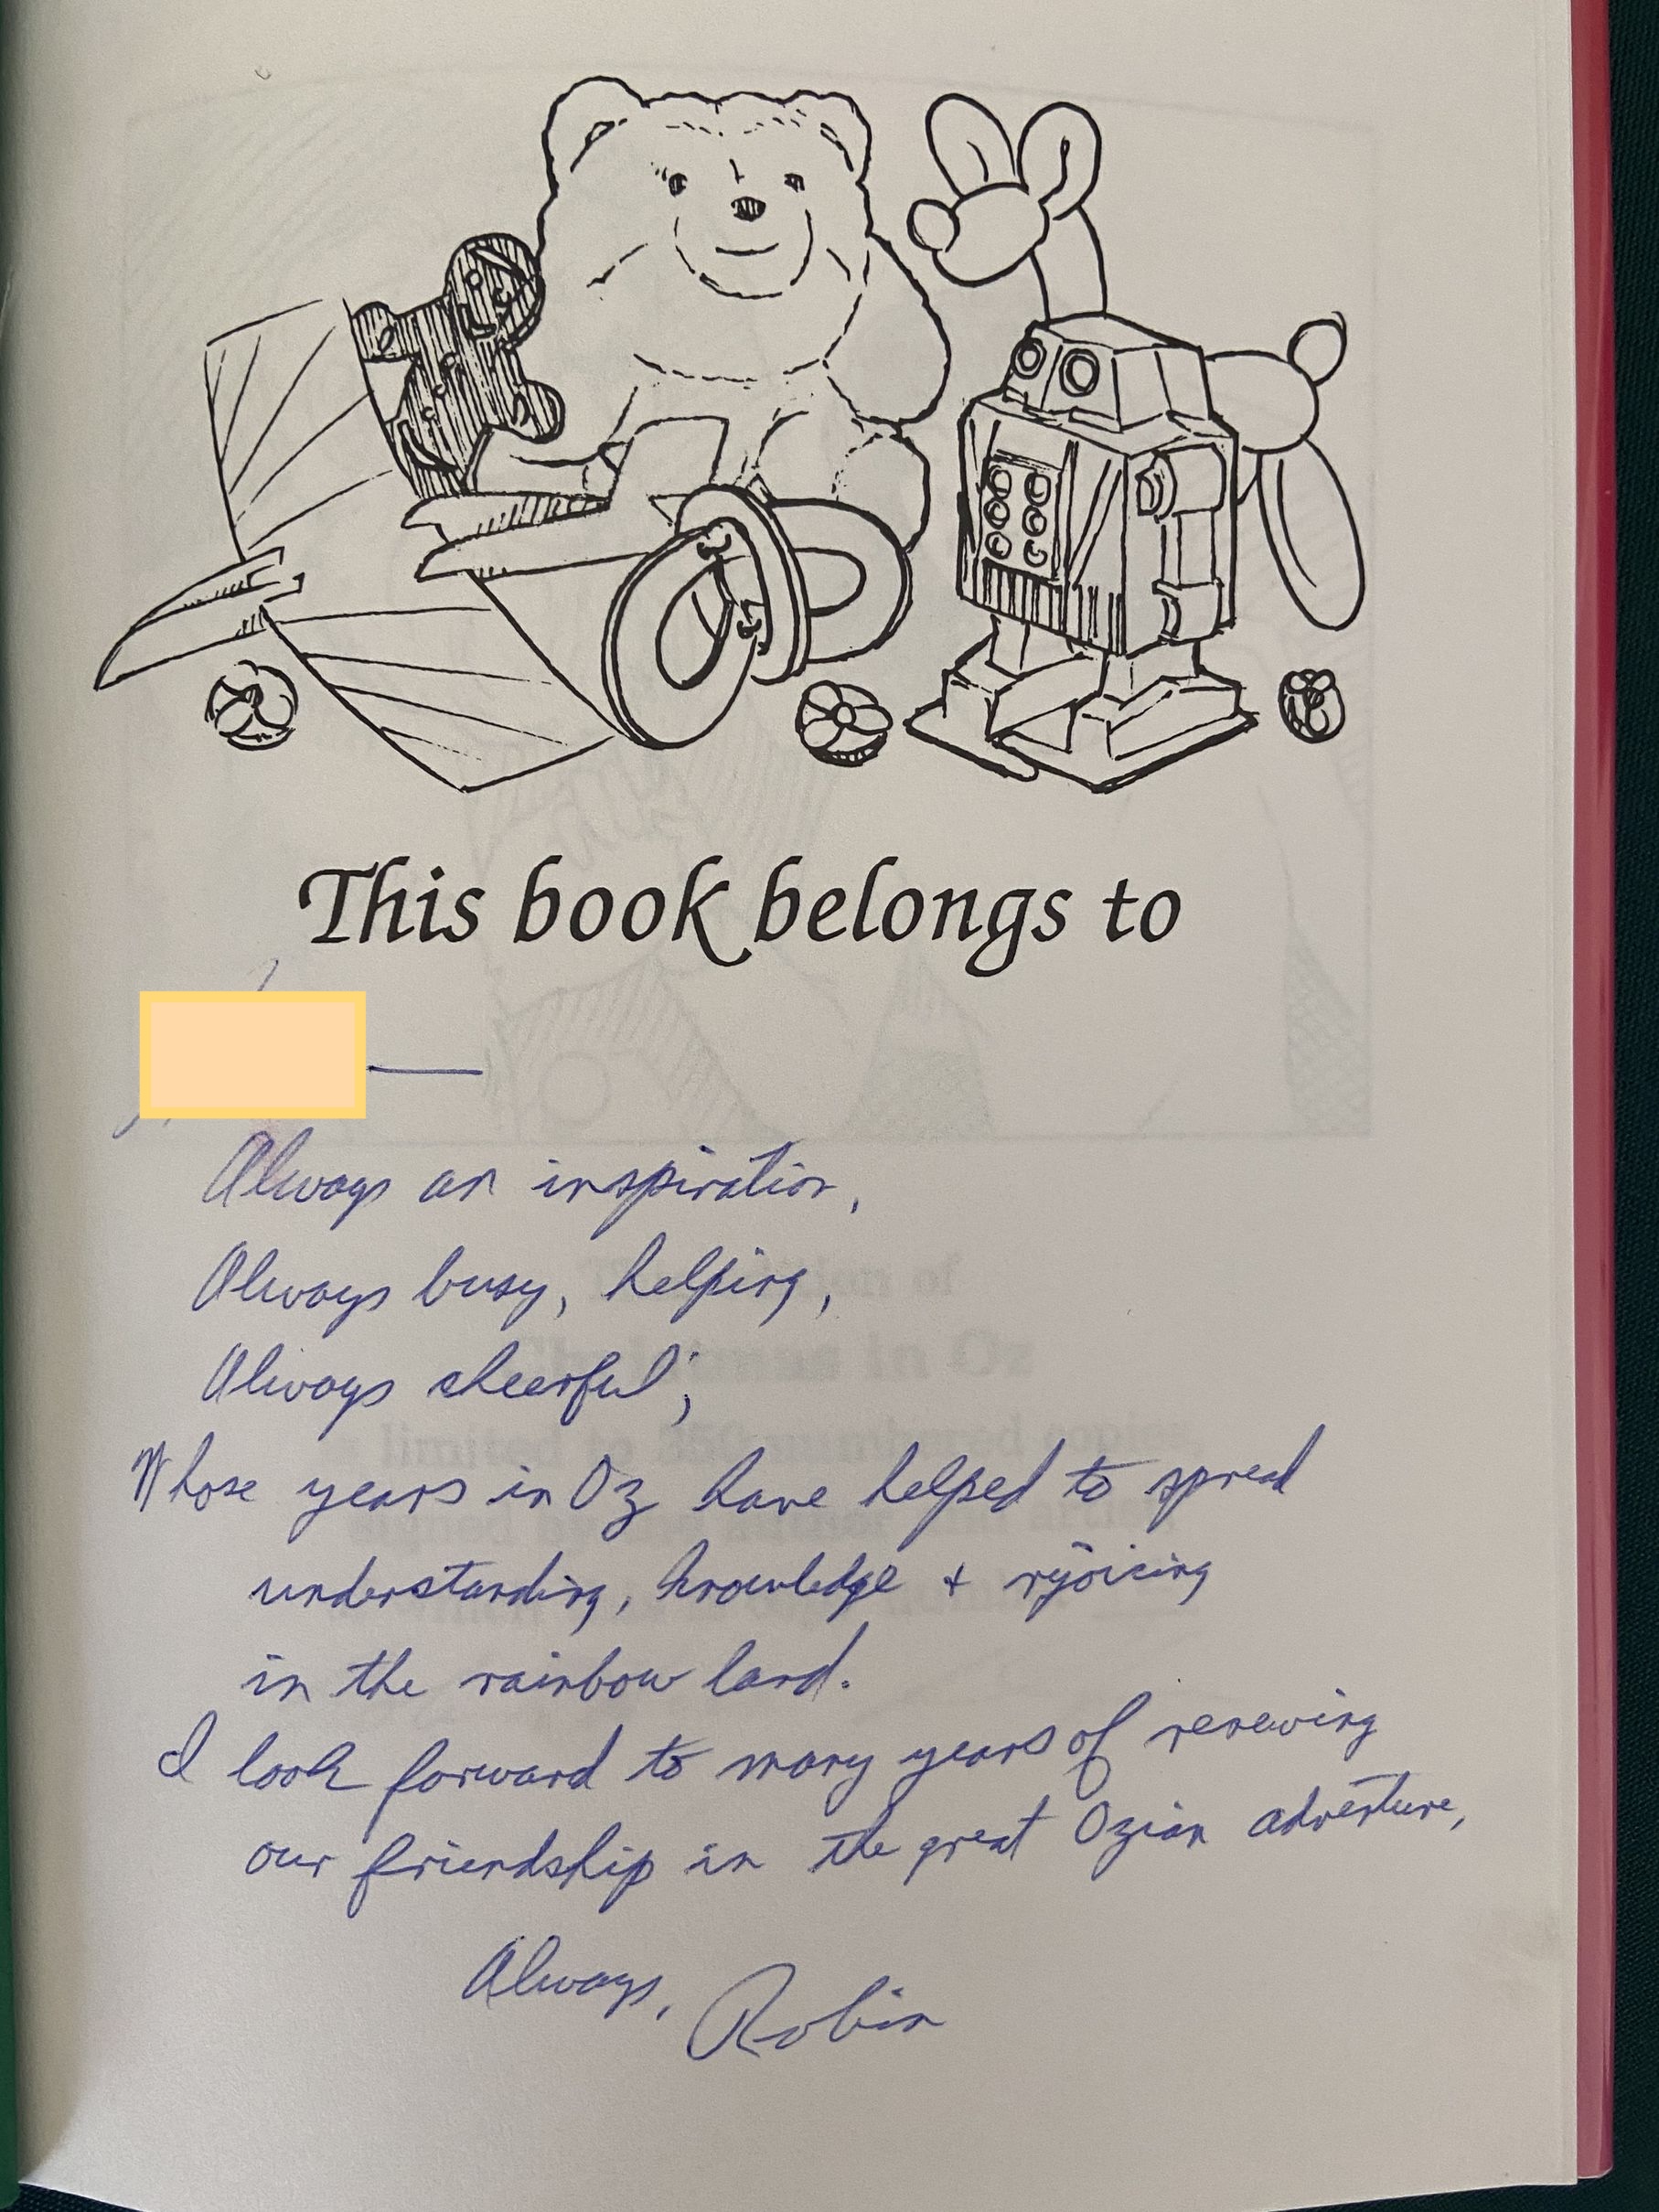 This book belongs to
Always an inspiration,
Always busy, helping,
Always cheerful;
Whose years in Oz have helped to spread
understanding, knowledge + rejoicing
in the rainbow land.
I look forward to many years of renewing
our friendship in the great Ozian adventure,
Always, Robin